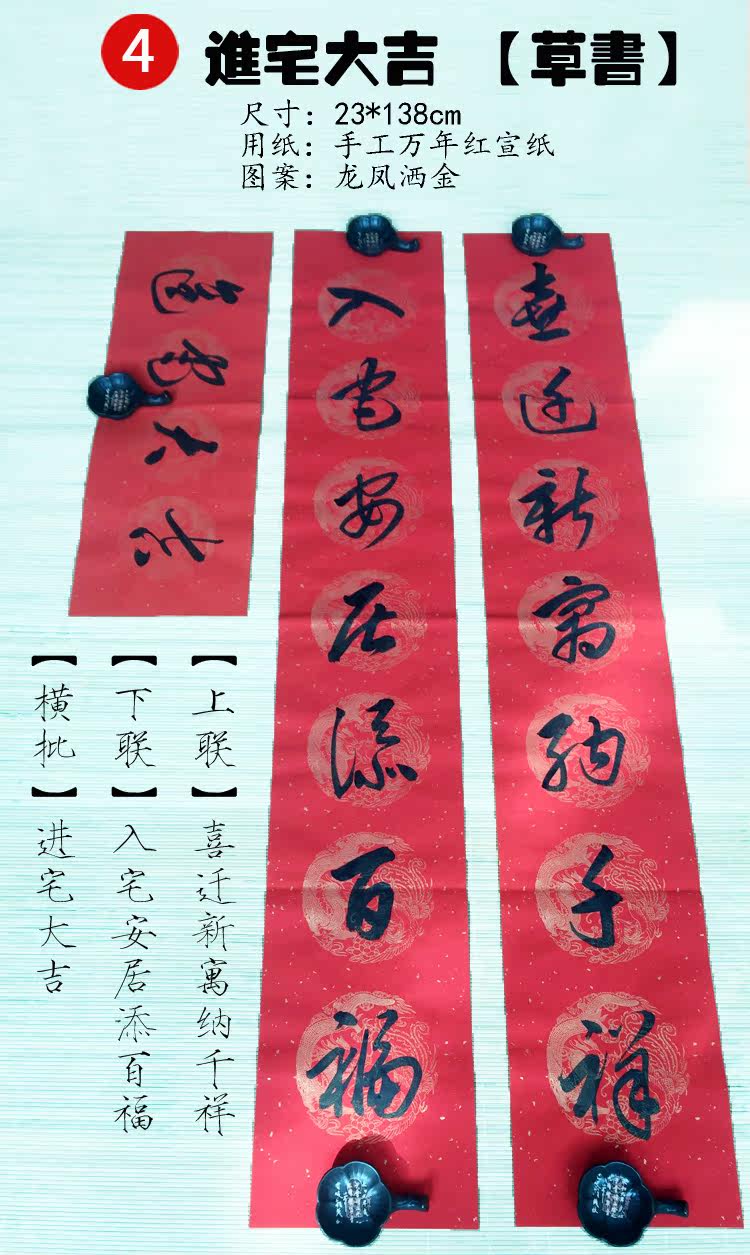 4 進宅大吉 【草書】
尺寸：23*138cm
用纸：手工万年红宣纸
图案：龙凤洒金
喜迁新寓纳千祥
入宅安居添百福
進宅大吉
【上联】喜迁新寓纳千祥
【下联】入宅安居添百福
【横批】进宅大吉